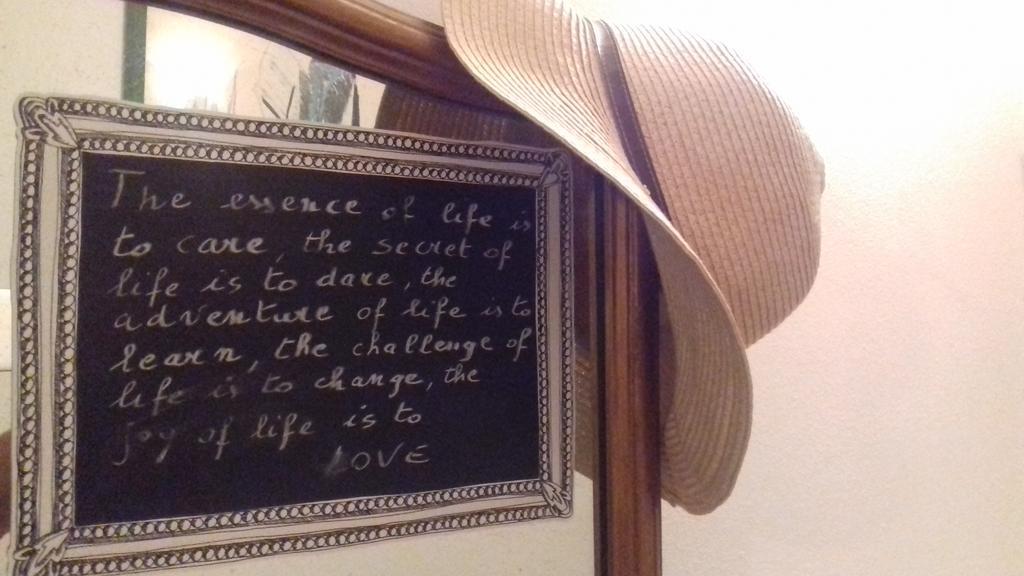 The essence of life is
to care, the secret of
life is to dare, the
adventure of life is to
learn, the challenge of
life is to change, the
joy of life is to
LOVE